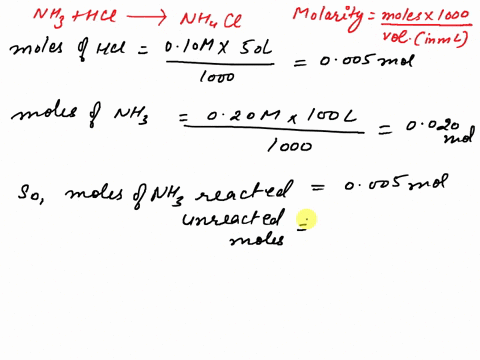 NH3 + HCl ⟶ NH4Cl
Molarity = moles x 1000 / vol. (in mL)
moles of HCl = 0.10M x 50L / 1000 = 0.005 mol
moles of NH3 = 0.20M x 100L / 1000 = 0.020 mol
So, moles of NH3 reacted = 0.005 mol
unreacted moles =